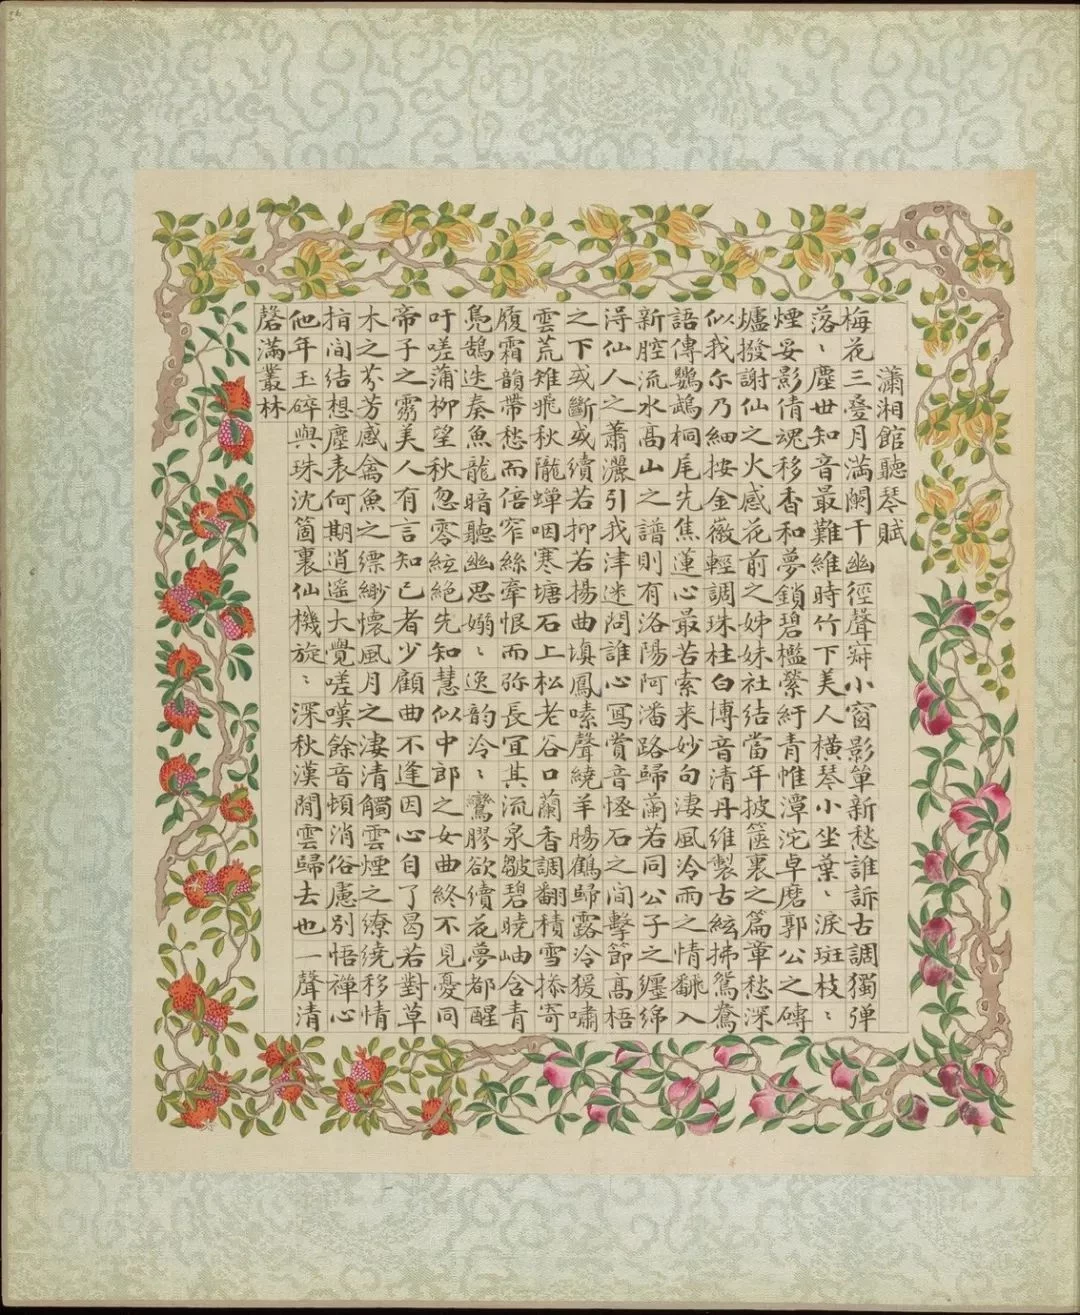 瀟湘館聽琴賦
梅花三疊月滿闌干幽徑聲寂小窗影單新愁誰訴古調獨彈
落〻塵世知音最難維時竹下美人橫琴小坐葉〻淚斑枝〻
煙妥影倩魂移香和夢鎖碧檻縈紆青帷潭沱卓磨郭公之磚
爐撥謝仙之火感花前之姊妹社結當年披篋裏之篇章愁深
似我尔乃細按金徽輕調珠柱白博音清丹維製古絃拂鴛鴦
語傳鸚鵡桐尾先焦蓮心最苦索来妙句淒風冷雨之情翻入
新腔流水高山之譜則有洛陽阿潘路歸蘭若同公子之纏綿
淂仙人之蕭灑引我津迷問誰心寫賞音怪石之间擊節高梧
之下或斷或續若抑若揚曲填鳳嗉聲繞羊腸鶴歸露冷猨嘯
雲荒雉飛秋隴蟬咽寒塘石上松老谷口蘭香調翻積雪寄
履霜韻帶愁而倍窄絲牽恨而弥長宜其流泉皺碧曉岫含青
鳧鵠迭奏魚龍暗聽幽思嫋〻逸韵泠〻鸞膠欲續花夢都醒
吁嗟蒲柳望秋忽零絃絶先知慧似中郎之女曲終不見憂同
帝子之美人有言知己者少顧曲不逢因心自了曷若對草
木之芬芳感禽魚之縹緲懷風月之淒清觸雲煙之繚繞移情
指间結想塵表何期逍遥大覺嗟嘆餘音頓消俗慮別悟禪心
他年玉碎與珠沈箇裏仙機旋〻深秋漢閒雲歸去也一聲清
磬滿叢林